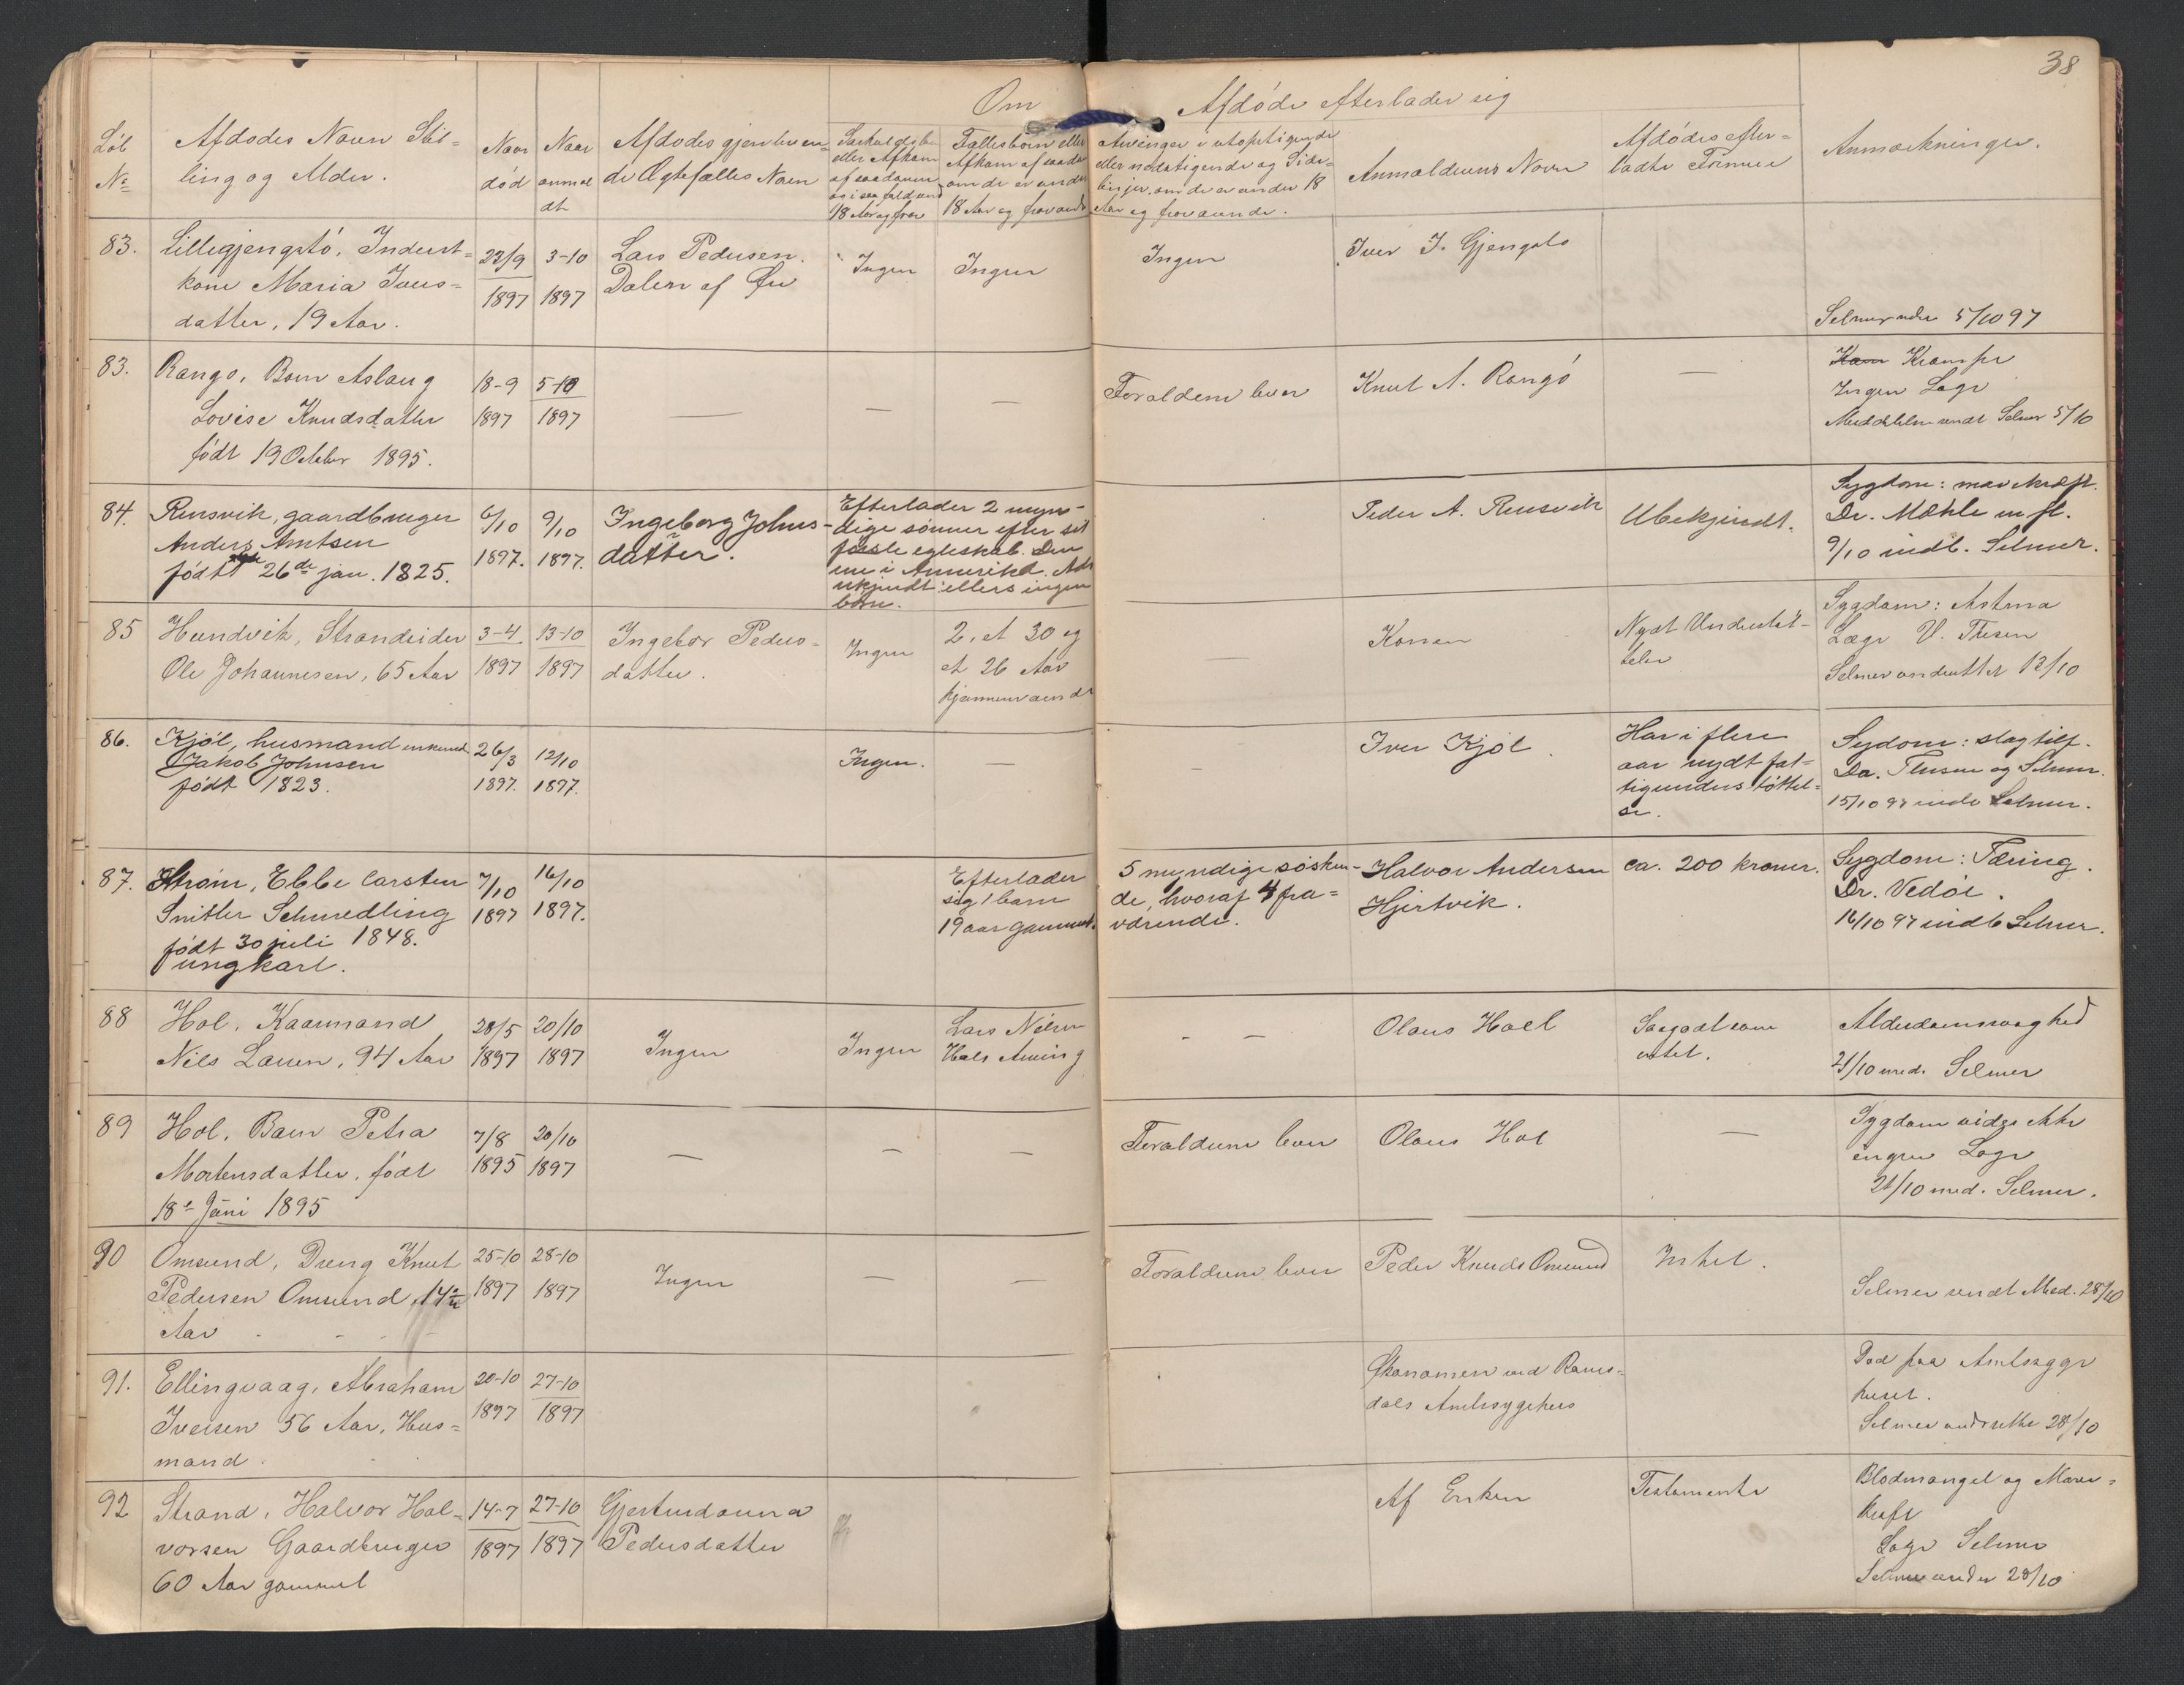 38
Om Afdöde efterlader sig
Löb
No
Afdödes Navn Stil-
ling og Alder.
Naar
död
Naar
anmel
dt
Afdödes gjenleven-
de Ægtefælles Navn
Særkuldsbörn
eller Afkom
af saadanne
og i saa fald under
18 Aar og frav
Fællesbörn eller
Afkom af saadan
om de er under
18 Aar og fraværende
Arvinger i utopstigende
eller nedstigende og Side-
linjer, om de er under 18
Aar og fraværende.
Anmelderens Navn
Afdödes efter-
ladte Formue
Anmærkninger.
83.
Lillegjengstö, Inderst-
kone Maria Ivers-
datter, 19 Aar.
23/9
1897
3-10
1897
Lars Pedersen.
Dalen af Öre
Ingen
Ingen
Ingen
Iver I. Gjengstö
Selmer 5/10 97
83.
Rangö, Barn Aslaug
Lovise Knudsdatter
födt 19 October 1895.
18-9
1897
5-10
1897
—
—
—
Forældrene lever
Knut A. Rangö
—
Krampe
Ingen Læge
Meddelelse sendt Selmer 5/10
84.
Rensvik, gaardbruger
Anders Arntsen
födt 26de jan. 1825.
6/10
1897.
9/10
1897.
Ingeborg Johns-
datter.
Efterlader 2 myn-
dige sönner efter sit
förste egteskab. Den
ene i Amerika. Adr
ukjendt ellers ingen
börn.
Peder A. Rensvik
Ubekjendt.
Sygdom: mavekræft.
Dr. Mæhle m. fl.
9/10 indb. Selmer.
85
Hundvik, Strandsider
Ole Johannesen, 65 Aar
3-4
1897
13-10
1897
Ingebor Peders-
datter.
Ingen
2, et 30 og
et 26 Aar
hjemmeværende
—
Konen
Nydt Understöt-
telse
Sygdom: Astma
Læge V. Thesen
Selmer underrettet 13/10
86.
Kjöl, husmand enkemd.
Jakob Johnsen
födt 1823.
26/3
1897.
12/10
1897.
Ingen.
—
—
Iver Kjöl.
Har i flere
aar nydt fat-
tigunderstöttel-
se.
Sydom: slagtilf.
Dr. Thesen og Selmer.
15/10 97 indb Selmer.
87.
Ström, Ebbe Carsten
Snitler Schmedling
födt 30 juli 1848.
ungkarl.
7/10
1897
16/10
1897.
Efterlader
sig 1 barn
19 aar gammel.
5 myndige sösken-
de, hvoraf 4 fra-
værende.
Halvor Andersen
Hjertvik.
ca. 200 kroner.
Sygdom: Tæring.
Dr. Vedöe.
16/10 97 indb Selmer.
88
Hol, Kaarmand
Nils Larsen, 94 Aar
28/5
1897
20/10
1897
Ingen
Ingen
Lars Nilsen
Hals Arving
- —
Olaus Hoel
Saagodtsom
intet.
Alderdomssvaghed
21/10 med. Selmer
89
Hol, Barn Petra
Mortensdatter, födt
18e Juni 1895
7/8
1895
20/10
1897
—
—
—
Forældrene lever
Olaus Hol
—
Sygdom vides ikke
ingen Læge
21/10 med. Selmer.
90
Omsund, Dreng Knut
Pedersen Omsund, 14
Aar
25-10
1897
28-10
1897
Ingen
—
—
Forældrene lever
Peder Knuds Omsund
Intet.
Selmer sendt Med. 28/10
91.
Ellingvaag, Abraham
Iversen 56 Aar, Hus-
mand
20-10
1897
27-10
1897
Ökonomen ved Roms-
dals Amtssygehus
Död paa Amtssyge
huset.
Selmer underrettet 28/10
92
Strand, Halvor Hal-
vorsen Gaardbruger
60 Aar gammel
14-7
1897
27-10
1897
Gjertrudanna
Pedersdatter
Af Enken
Testamente
Blodmangel og Mave-
kræft
Læge Selmer
Selmer under 28/10